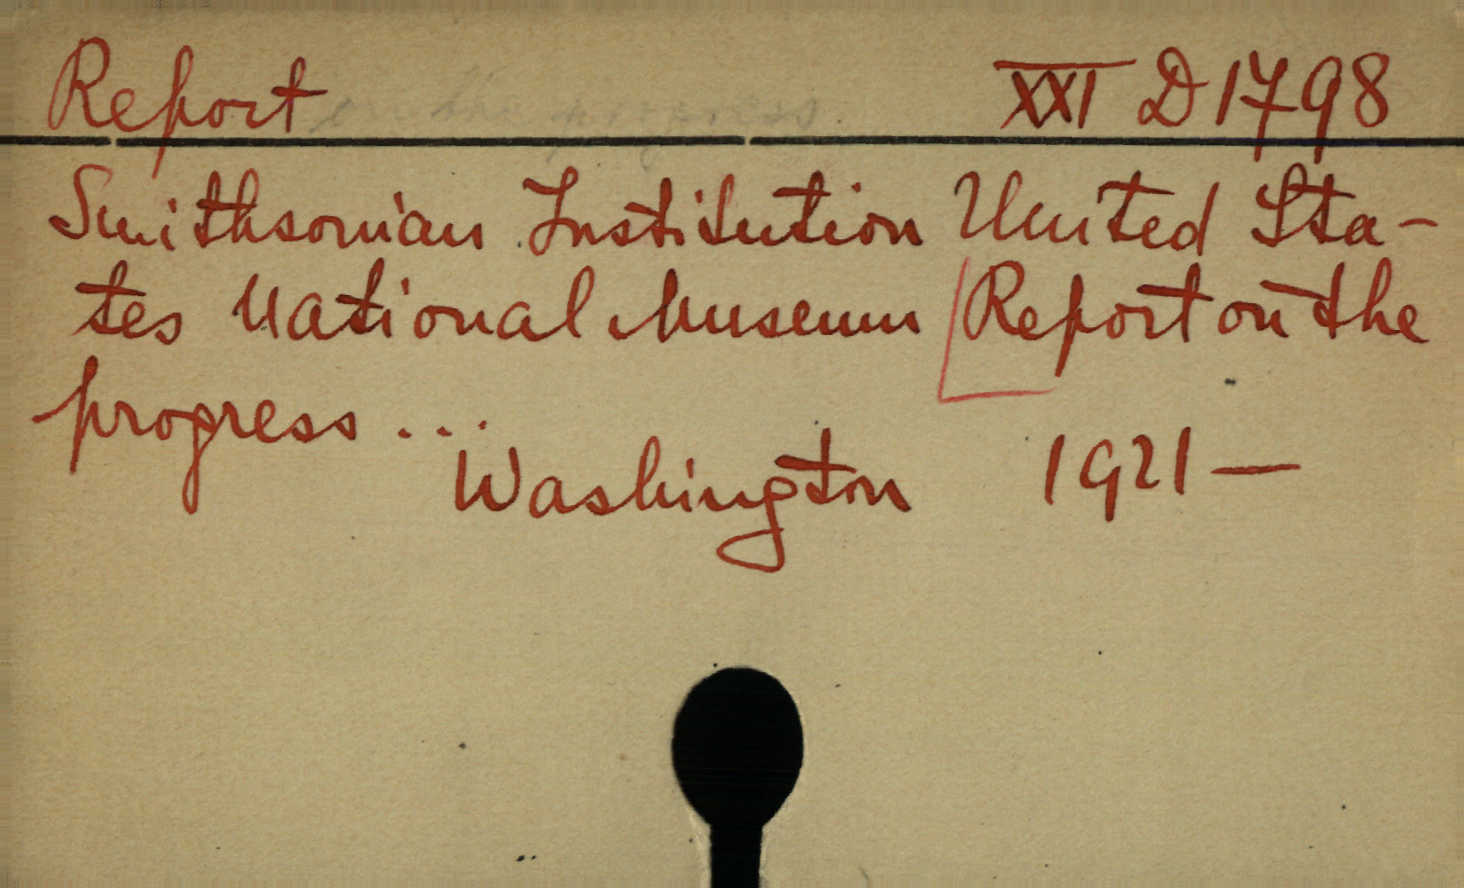 Report on the progress XXI D 1798
Smithsonian Institution United Sta-
tes National Museum [Report on the
progress ...
Washington 1921—